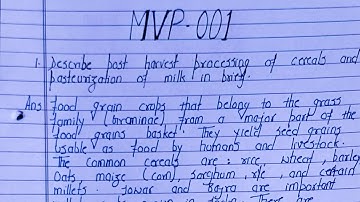 MVP-001
1. Describe post harvest processing of cereals and
pasteurization of milk in brief.
Ans Food grain crops that belong to the grass
family (Graminae) from a major part of the
food grains basket. They yield seed grains
usable as food by humans and livestock.
The common cereals are: rice, wheat, barley
Oats, maize (corn), sorghum, rye, and certain
millets. Jowar and Bajra are important